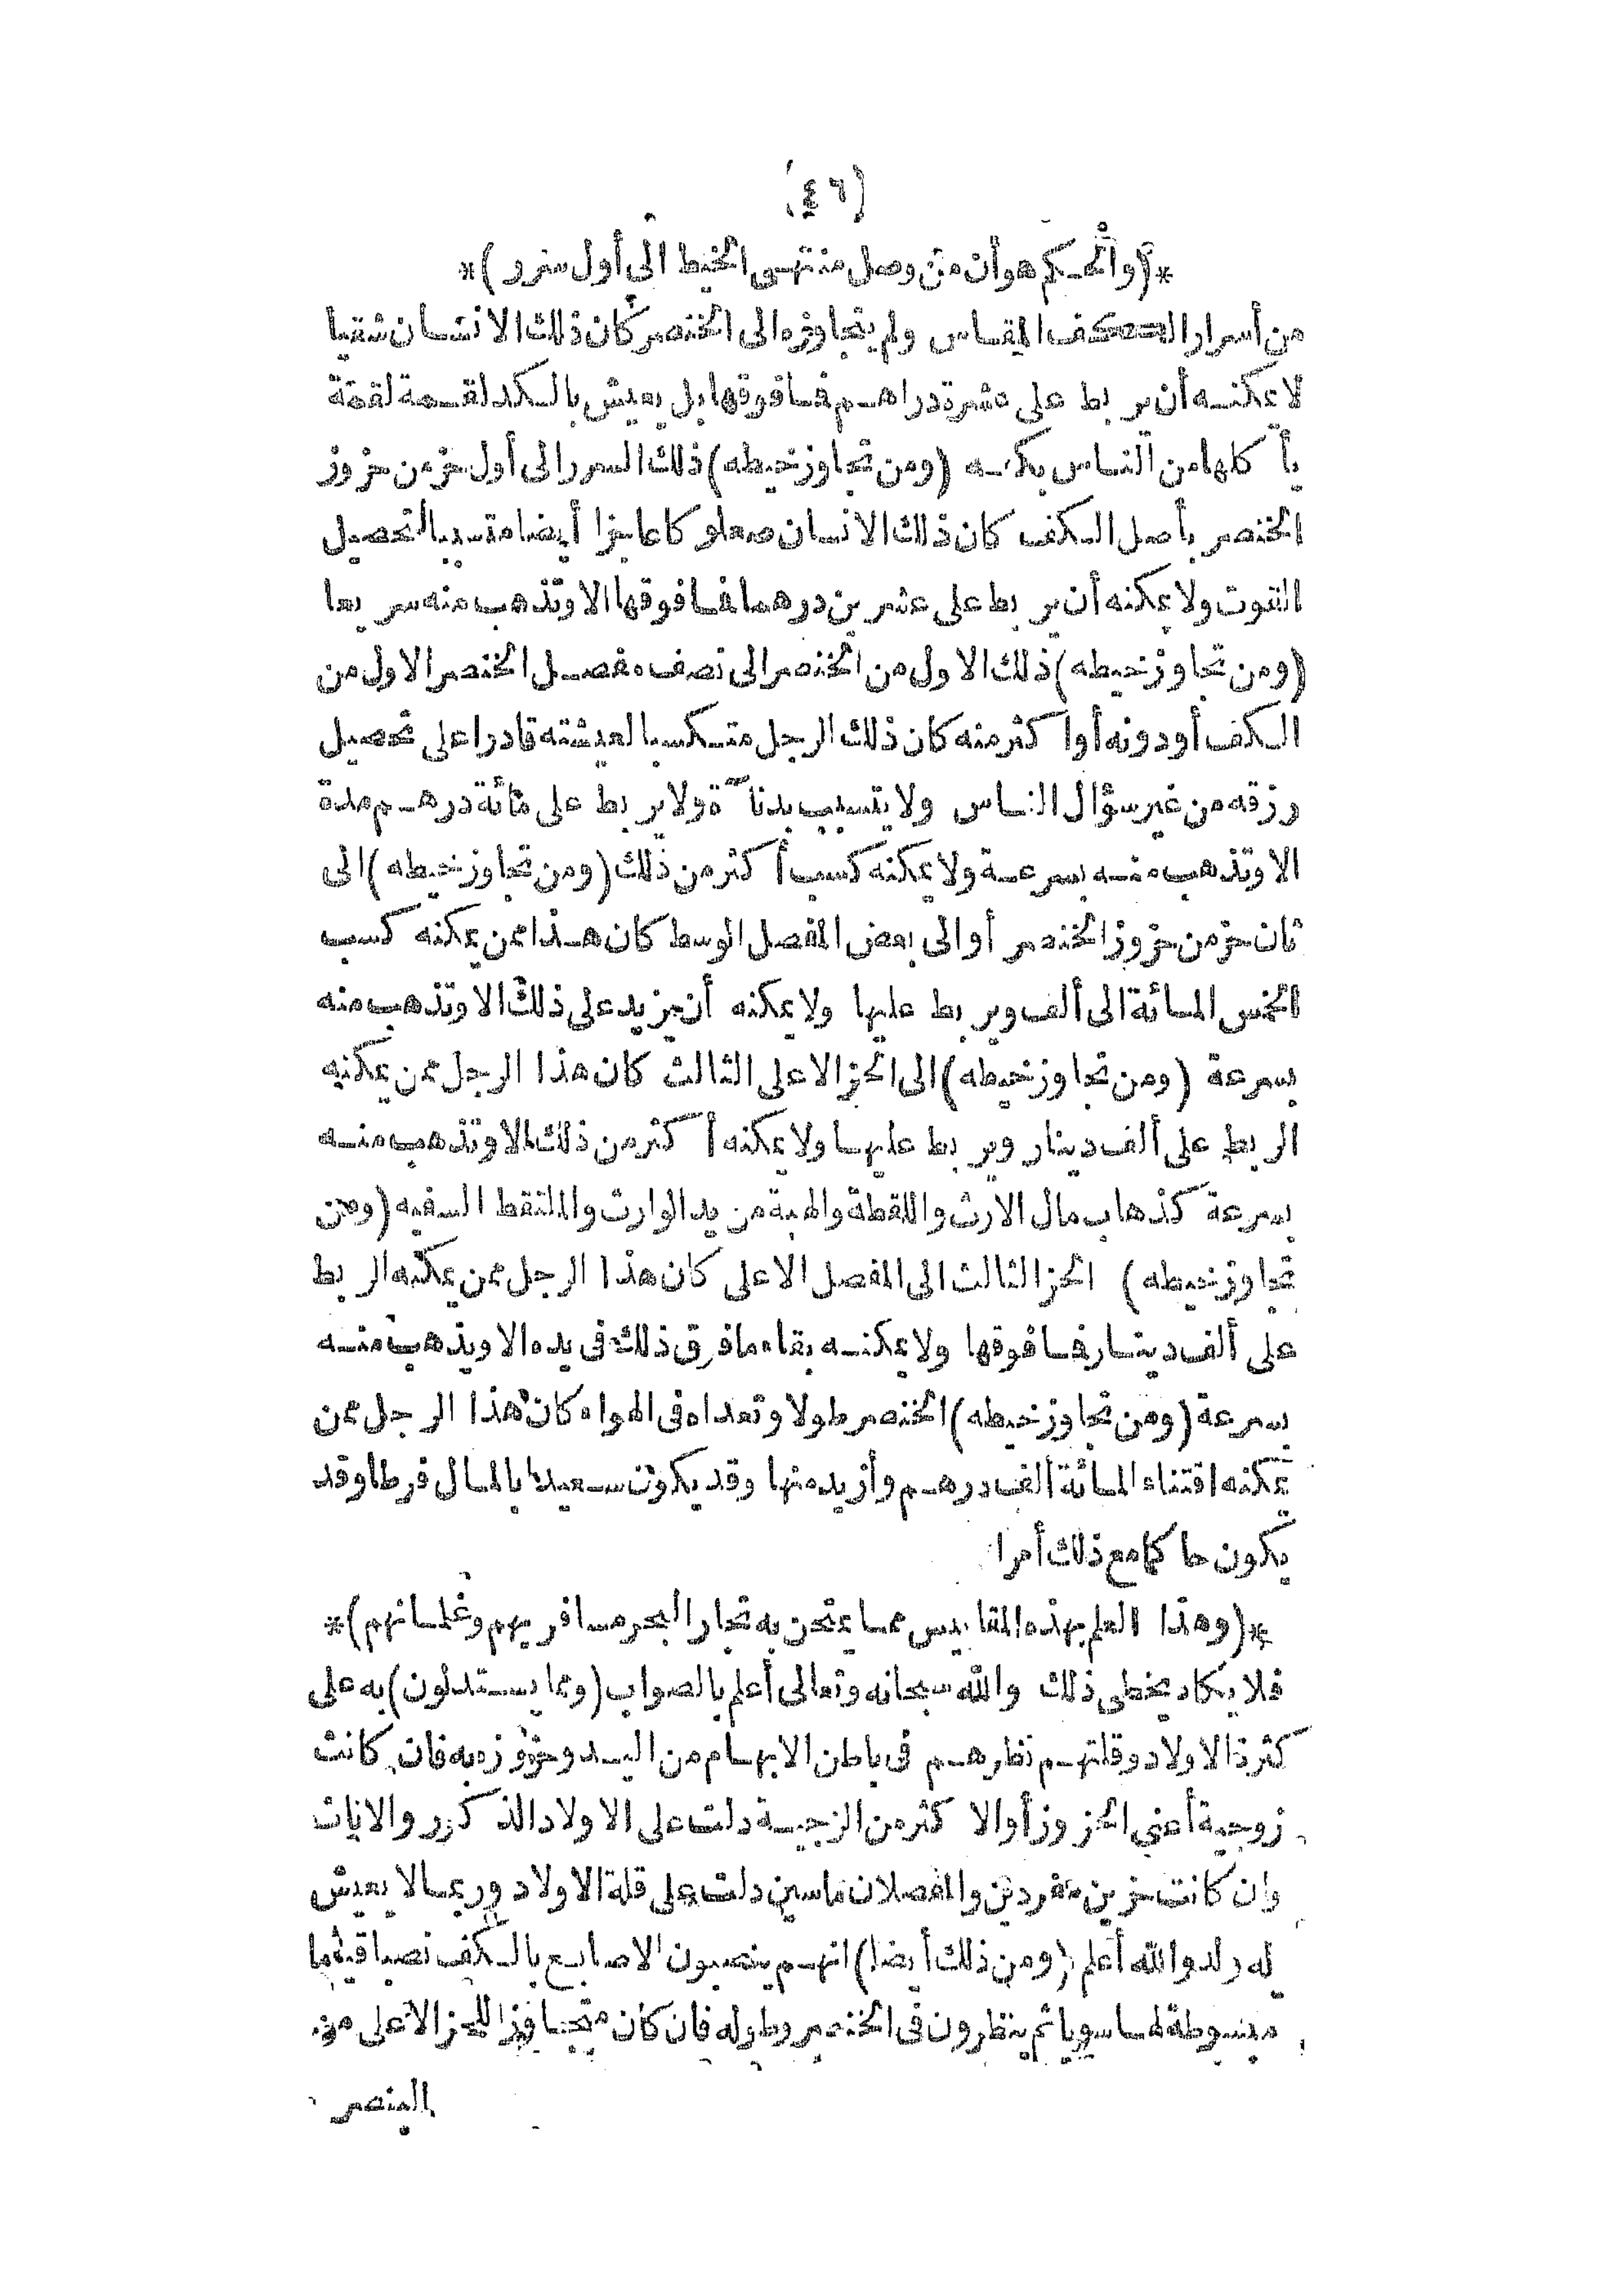 (٤٦)
*(والحكم هو أن من وصل منتهى الخيط الى أول سرر)*
من أسرار الكف المقاس ولم يتجاوزه الى الخنصر كان ذلك الانسان شقيا
لا يمكنه أن يربط على عشرة دراهم فما فوقها بل يعيش بالكد لقمة لقمة
يأكلها من الناس بكره (ومن تجاوز خيطه) ذلك السرر الى أول حز من حزوز
الخنصر بأصل الكف كان ذلك الانسان صعلوكا عاجزا أيضا متسببا لتحصيل
القوت ولا يمكنه أن يربط على عشرين درهما فما فوقها الا وتذهب منه سريعا
(ومن تجاوز خيطه) ذلك الاول من الخنصر الى نصف مفصل الخنصر الاول من
الكف أودونه أوأكثر منه كان ذلك الرجل متكسبا لعيشته قادرا على تحصيل
رزقه من غير سؤال الناس ولا يتسبب بدناءة ولا يربط على مائة درهم مدة
الا وتذهب منه بسرعة ولا يمكنه كسب أكثر من ذلك (ومن تجاوز خيطه) الى
ثان حز من حزوز الخنصر أوالى بعض المفصل الوسط كان هذا ممن يمكنه كسب
الخمس المائة الى ألف ويربط عليها ولا يمكنه أن يزيد على ذلك الا وتذهب منه
بسرعة (ومن تجاوز خيطه) الى الحز الاعلى الثالث كان هذا الرجل ممن يمكنه
الربط على ألف دينار ويربط عليها ولا يمكنه أكثر من ذلك الا وتذهب منه
بسرعة كذهاب مال الارث واللقطة والهبة من يد الوارث والملتقط السفيه (ومن
تجاوز خيطه) الحز الثالث الى المفصل الاعلى كان هذا الرجل ممن يمكنه الربط
على ألف دينار فما فوقها ولا يمكنه بقاء ما فوق ذلك فى يده الا ويذهب منه
بسرعة (ومن تجاوز خيطه) الخنصر طولا وتعداه فى الهواء كان هذا الرجل ممن
يمكنه اقتناء المائة ألف درهم وأزيد منها وقد يكون سعيدا بالمال فرطا وقد
يكون حاكما مع ذلك أمرا
*(وهذا العلم بهذه المقاييس مما يمتحن به تجار البحر مسافريهم وغلمانهم)*
فلا يكاد يخطى ذلك والله سبحانه وتعالى أعلم بالصواب (ومما يستدلون) به على
كثرة الاولاد وقلتهم نظرهم فى باطن الابهام من اليد وحزوزه به فان كانت
زوجية أعنى الحزوز أوالاكثر من الزجيه دلت على الاولاد الذكور والاناث
وان كانت حزين مفردين والمفصلان ماسين دلت على قلة الاولاد وربما لا يعيش
له ولد والله أعلم (ومن ذلك أيضا) انهم ينصبون الاصابع بالكف نصبا قيما
مبسوطة لها سويا ثم ينظرون فى الخنصر وطوله فان كان متجاوزا للحز الاعلى من
البنصر